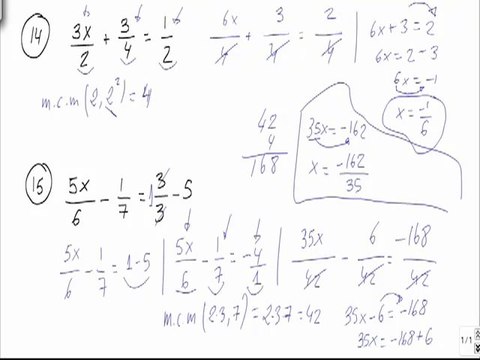 14 3x/2 + 3/4 = 1/2 6x/4 + 3/4 = 2/4 6x+3=2
6x=2-3
6x=-1
x=-1/6
m.c.m(2,2²)=4
42
4
168
35x=-162
x=-162/35
15 5x/6 - 1/7 = 1 3/3 - 5
5x/6 - 1/7 = 1-5 5x/6 - 1/7 = -4/1 35x/42 - 6/42 = -168/42
m.c.m(2·3,7)=2·3·7=42
35x-6=-168
35x=-168+6
1/1